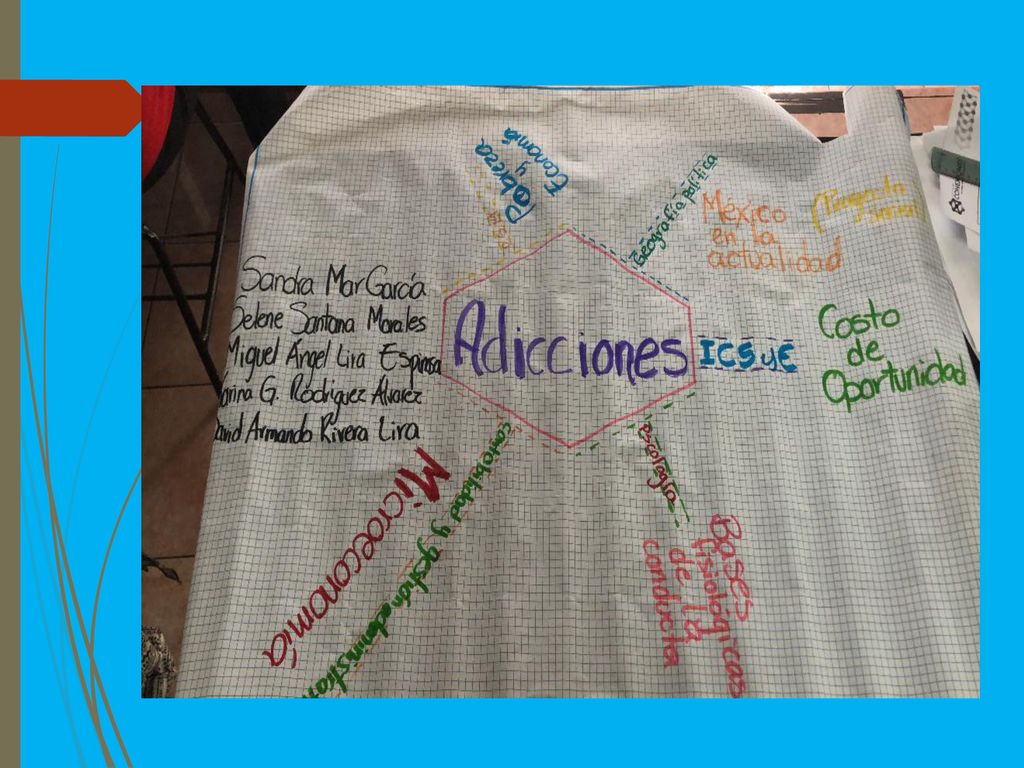 Pobreza
y
Economía
Geografía política
México
en la
actualidad
Sandra Mar García
Selene Santana Morales
Miguel Ángel Lira Espinosa
G. Rodríguez Álvarez
Armando Rivera Lira
Adicciones
ICSyE
Costo
de
Oportunidad
contabilidad y gestión
Microeconomía
Psicología
Bases
fisiológicas
de la
conducta